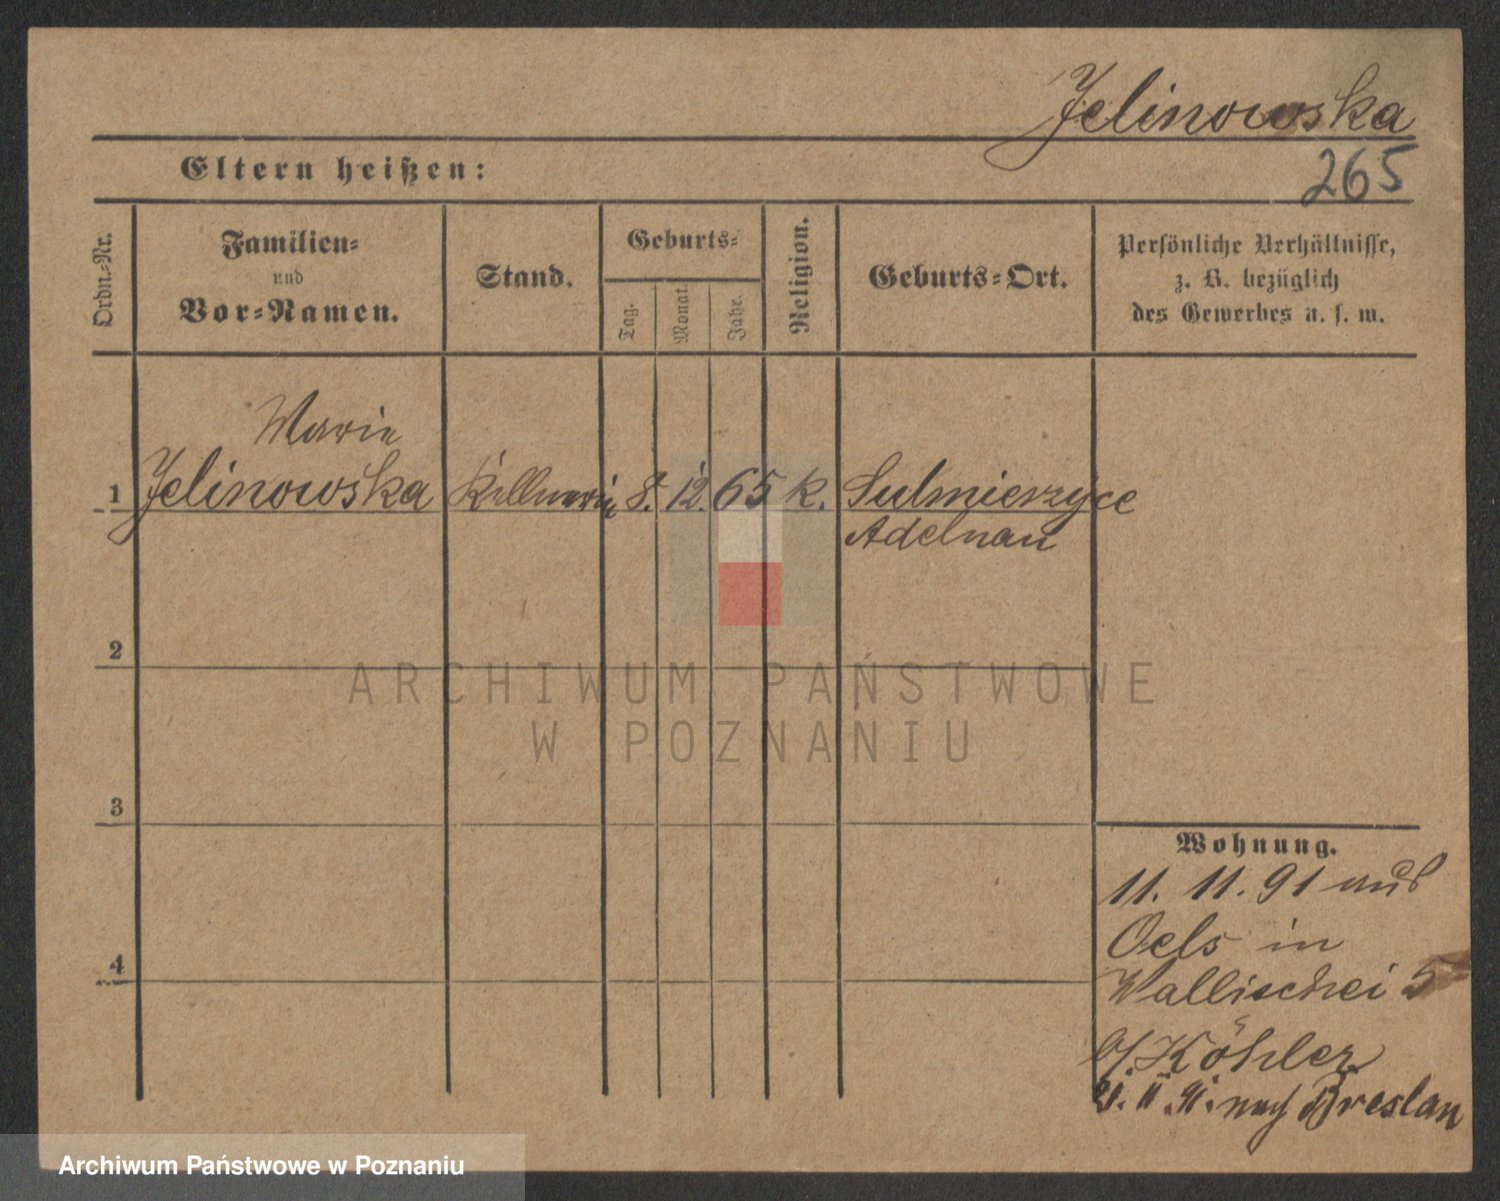 Jelinowska
265
Eltern heißen:
Ordn.-Nr.
Familien-
und
Vor-Namen.
Stand.
Geburts-
Tag.
Monat.
Jahr.
Religion.
Geburts-Ort.
Persönliche Verhältnisse,
z. B. bezüglich
des Gewerbes u. s. w.
Marie
1 Jelinowska Kellnerin 8. 12. 65 k. Sulmierzyce
Adelnau
2
3
4
Wohnung.
11. 11. 91 aus
Oels in
Wallischei 5
b/. Köhler
21. 11. 91. nach Breslau
ARCHIWUM PAŃSTWOWE
W POZNANIU
Archiwum Państwowe w Poznaniu